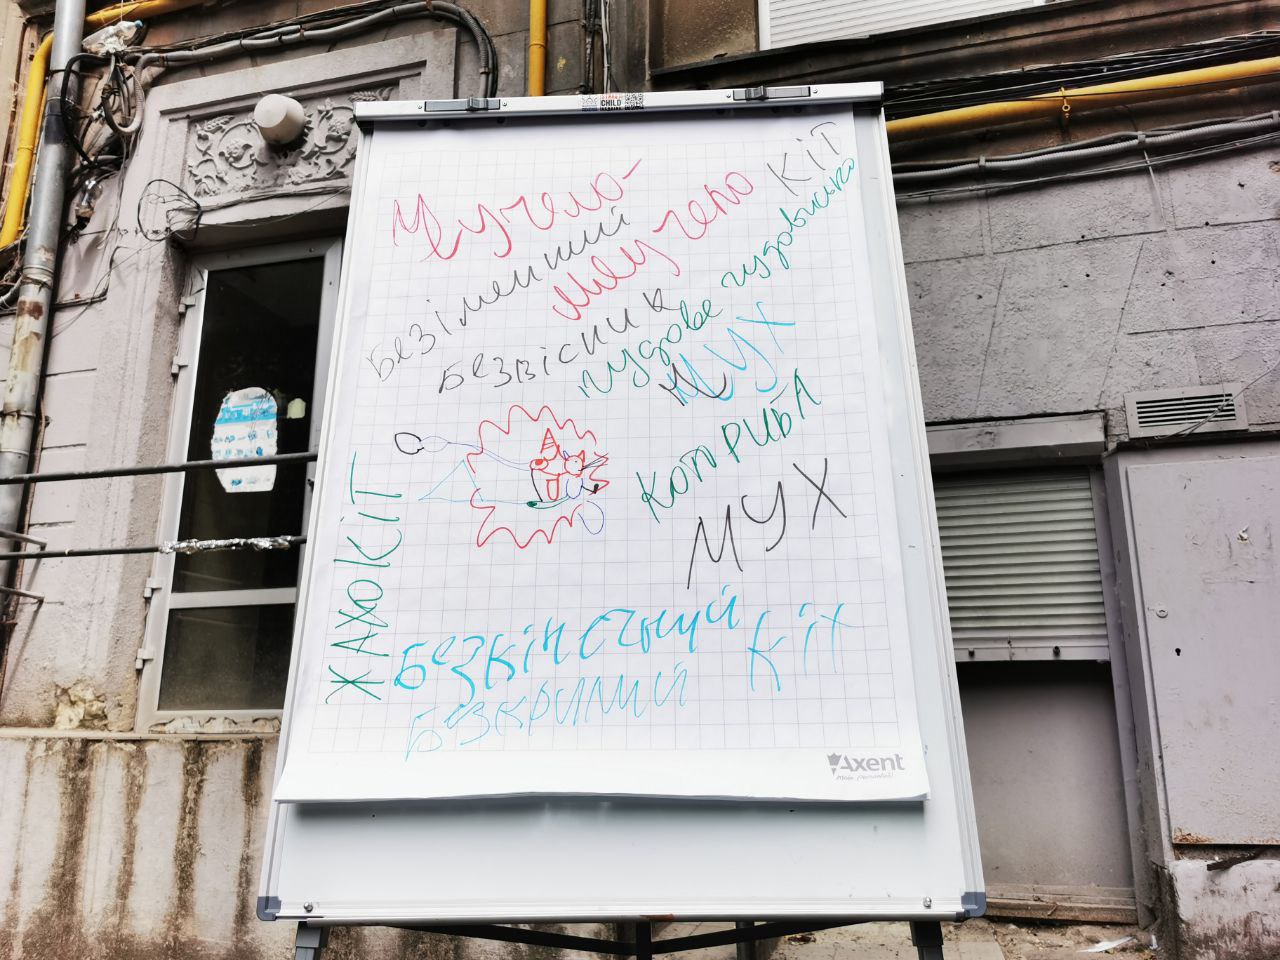 Чучело-
Мяучело
КІТ
Безіменний
Безвісник
чудове чудовисько
МУХ
КОТОРИБА
МУХ
ЖАХОКІТ
Безкінечний
КІТ
Безкрилий
Axent
CHILD